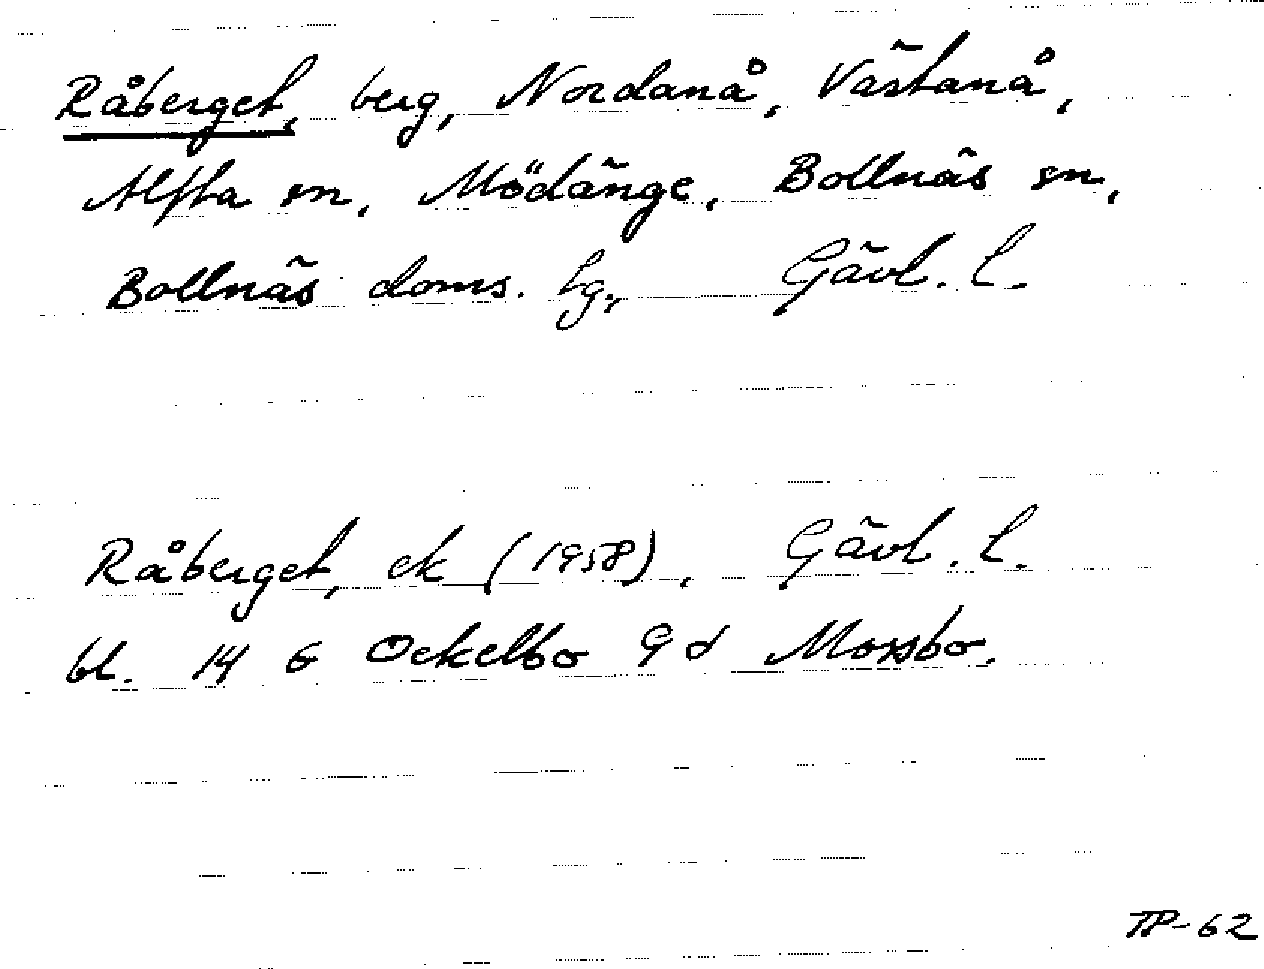 Råberget, berg, Nordanå, Västanå,
Alfta sn, Mödänge, Bollnäs sn,
Bollnäs doms. hg, Gävl. l.
Råberget, ek (1958), Gävl. l.
bl. 14 G Ockelbo 9 d Mossbo.
TP-62